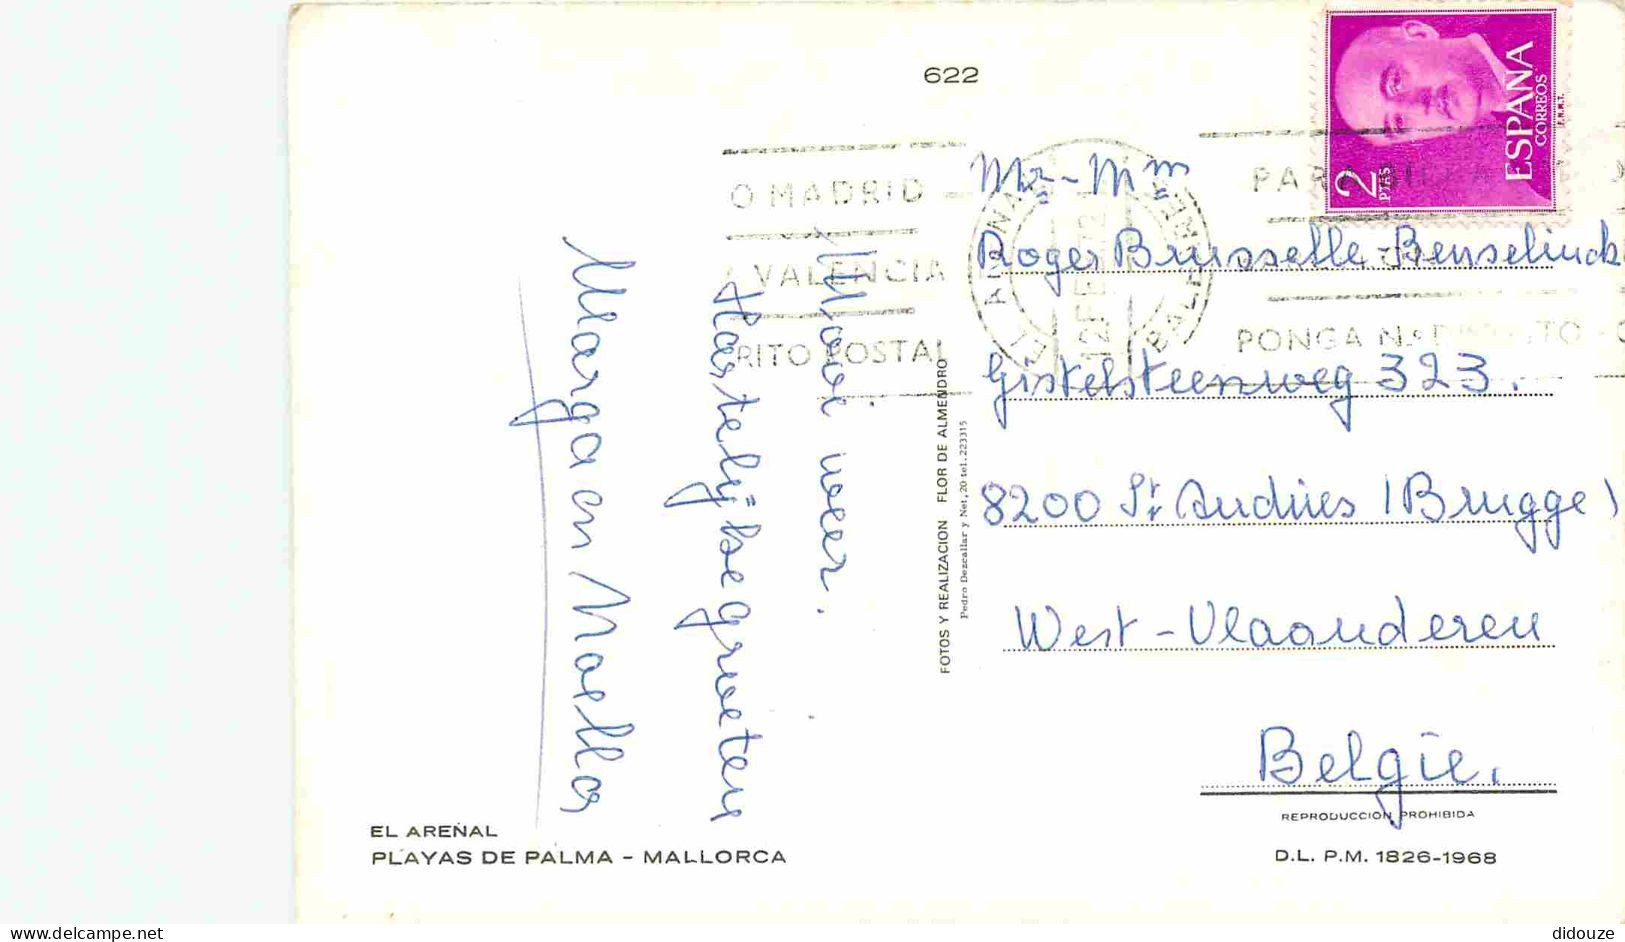 622
ESPAÑA
CORREOS
2
PTAS
F.N.M.T.
O MADRID
VALENCIA
RITO POSTAL
EL ARENAL
BALEARES
12 FEB 72
PARA
PONGA
Mr - Mm
Roger Brusselle-Benselinck
Gistelsteenweg 323.
8200 St Andries (Brugge)
West-Vlaanderen
België.
Mooi weer.
Hartelijkse groeten
Marga en
FOTOS Y REALIZACION FLOR DE ALMENDRO
Pedro Dezcallar y Net, 20 tel. 223315
EL ARENAL
PLAYAS DE PALMA - MALLORCA
REPRODUCCION PROHIBIDA
D.L. P.M. 1826-1968
www.delcampe.net
didouze